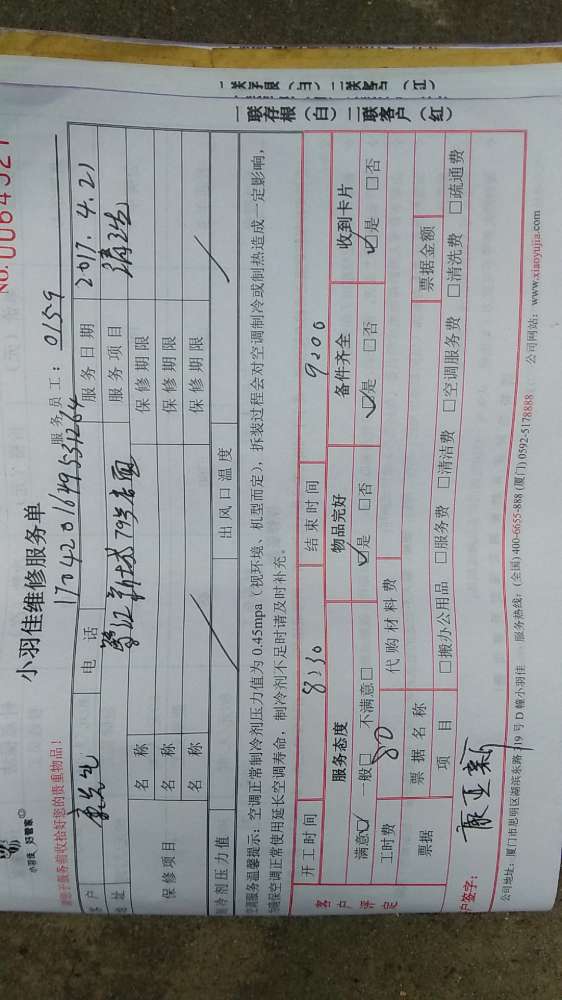 一联存根（白）二联客户（红）
小羽佳 好管家
NO.0064521
小羽佳维修服务单
1704201649551264
服务员工：0159
请在于服务前收拾好您的贵重物品！
客户 电话 服务日期 2017.4.21
地址 79号店面 服务项目 清洗
保修项目 名称 保修期限
名称 保修期限
名称 保修期限
制冷剂压力值 出风口温度
空调服务温馨提示：空调正常制冷剂压力值为0.45mpa（视环境、机型而定），拆装过程会对空调制冷或制热造成一定影响，
为确保空调正常使用延长空调寿命，制冷剂不足时请及时补充。
开工时间 8:30 结束时间 9:00
客户评定 服务态度 物品完好 备件齐全 收到卡片
满意☑ 一般□ 不满意□ ☑是 □否 ☑是 □否 ☑是 □否
工时费 80 代购材料费
票据 票据名称 票据金额
项目 □搬办公用品 □服务费 □清洁费 □空调服务费 □清洗费 □疏通费
户签字：
公司地址：厦门市思明区湖滨东路319号D幢小羽佳 服务热线：(全国)400-6655-888 (厦门)0592-5178888 公司网站：www.xiaoyujia.com